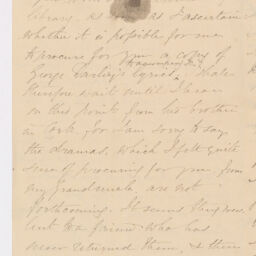 library as soon as I ascertain
whether it is possible for me
to procure for you a copy of
George Darley's lyrics. I shall
therefore wait until I hear
on this point from his brother
in Cork, for I am sorry to say
the dramas, which I felt quite
sure of procuring for you, from
my granduncle, are not
forthcoming. It seems they were
lent to a friend who has
never returned them, & there